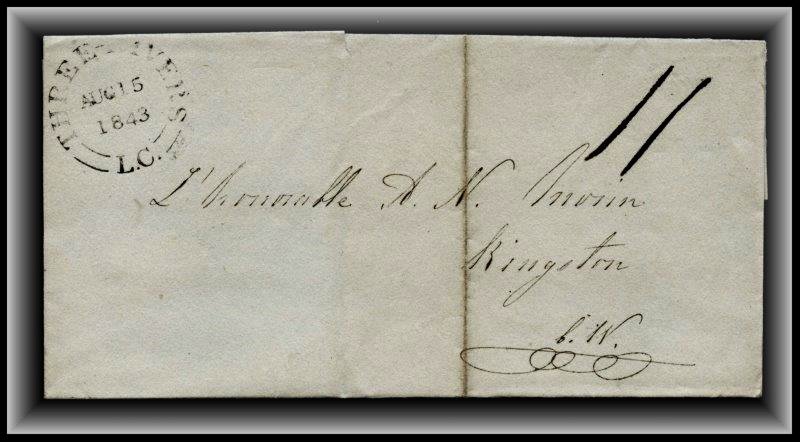 THREE RIVERS
AUG 15
1843
L.C.
11
L'honorable A. N. Morin
Kingston
C. W.